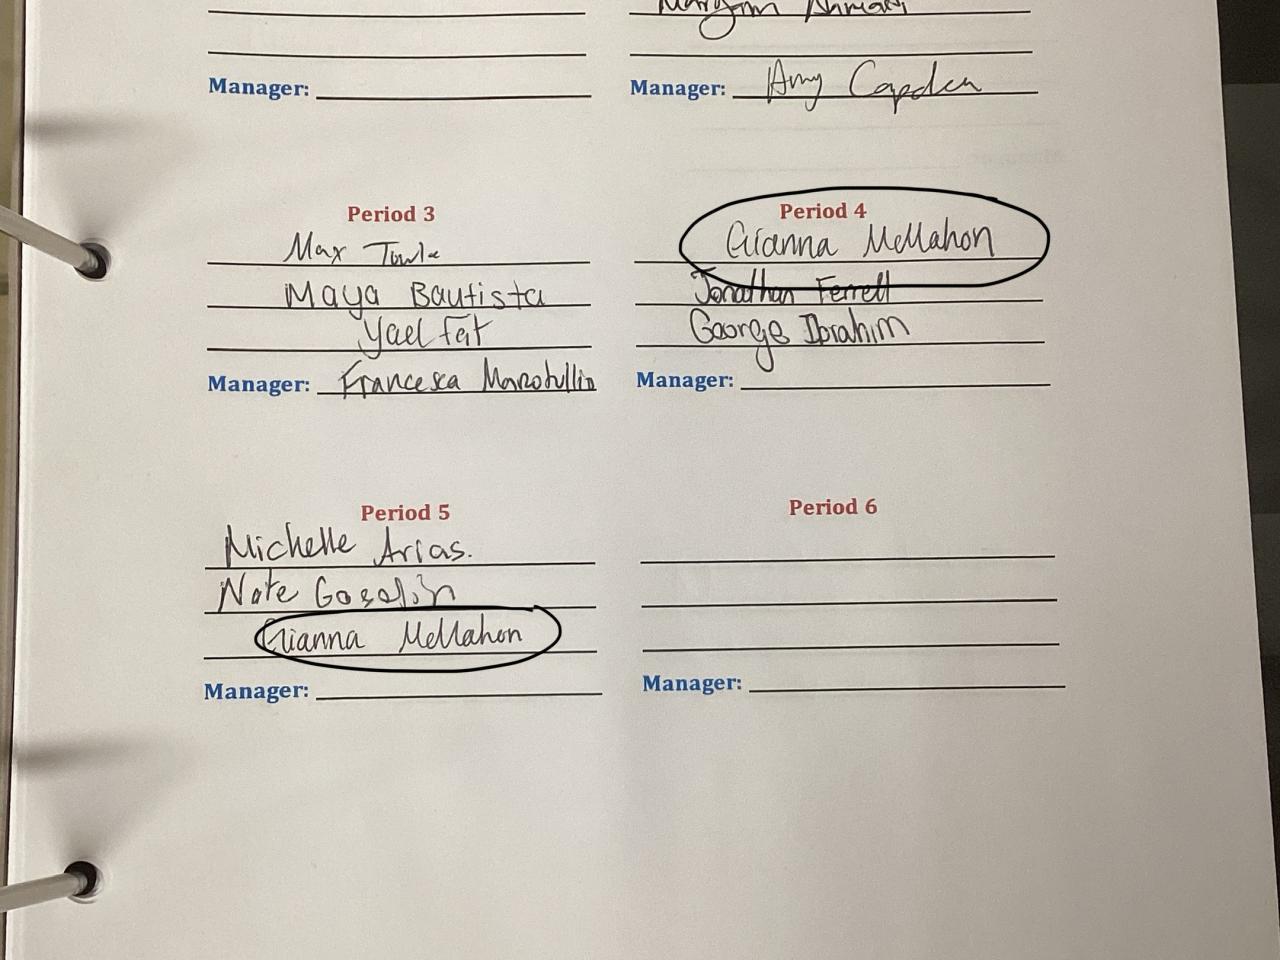 Manager:
Manager: Amy Capden
Period 3
Max Towle
Maya Bautista
Yael Fat
Manager: Francesca
Period 4
Gianna McMahon
Jonathan Ferrell
George Ibrahim
Manager:
Period 5
Michelle Arias.
Nate
Gianna McMahon
Manager:
Period 6
Manager: